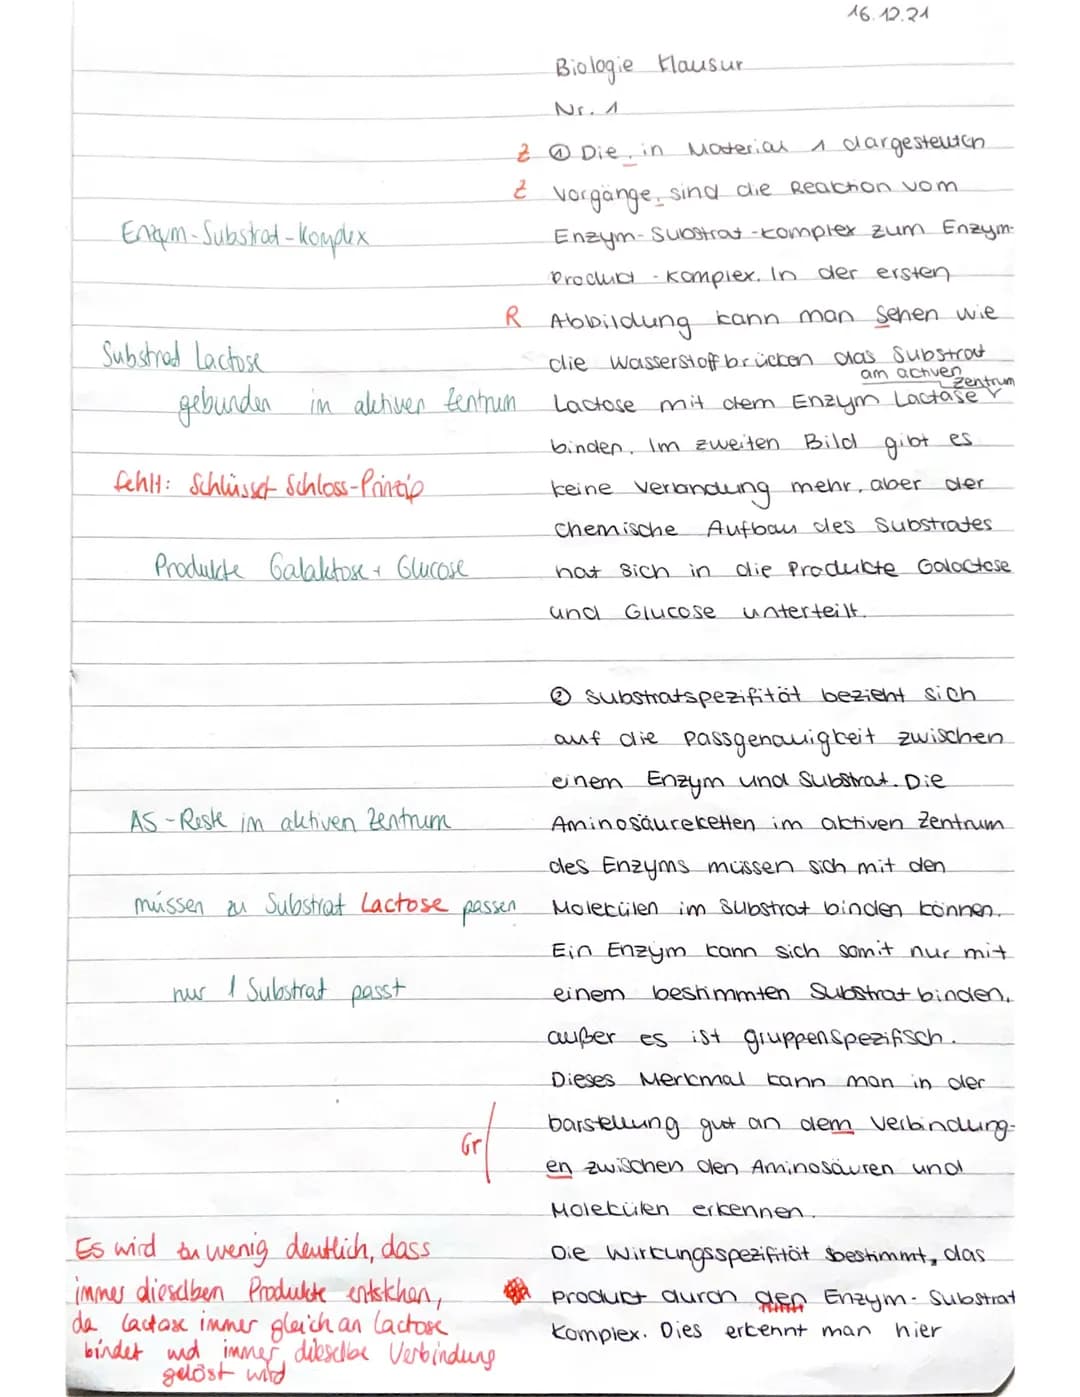 16.12.21
Biologie Klausur
Nr. 1
Z ① Die, in Material 1 dargestellten
Z Vorgänge, sind die Reaktion vom
Enzym-Substrat-Komplex
Enzym-Substrat-Komplex zum Enzym-
Produkt-Komplex. In der ersten
R Abbildung kann man Sehen wie
Substrad Lactose
die Wasserstoffbrücken das Substrat
am activen Zentrum
gebunden im aktiven Zentrum
Lactose mit dem Enzym Lactase
binden. Im zweiten Bild gibt es
fehlt: Schlüssel-Schloss-Prinzip
keine Verbindung mehr, aber der
chemische Aufbau des Substrates
Produkte Galaktose + Glucose
hat sich in die Produkte Galactose
und Glucose unterteilt.
② Substratspezifität bezieht sich
auf die Passgenauigkeit zwischen
einem Enzym und Substrat. Die
AS-Reste im aktiven Zentrum
Aminosäureketten im aktiven Zentrum
des Enzyms müssen sich mit den
müssen zu Substrat Lactose passen
Molekülen im Substrat binden können.
Ein Enzym kann sich somit nur mit
nur 1 Substrat passt
einem bestimmten Substrat binden,
außer es ist gruppenspezifisch.
Dieses Merkmal kann man in der
Gr
Darstellung gut an dem Verbindung-
en zwischen den Aminosäuren und
Molekülen erkennen.
Es wird zu wenig deutlich, dass
immer dieselben Produkte entstehen,
da Lactase immer gleich an Lactose
bindet und immer dieselbe Verbindung
gelöst wird
Die Wirkungsspezifität bestimmt, das
Product durch den Enzym-Substrat
Komplex. Dies erkennt man hier